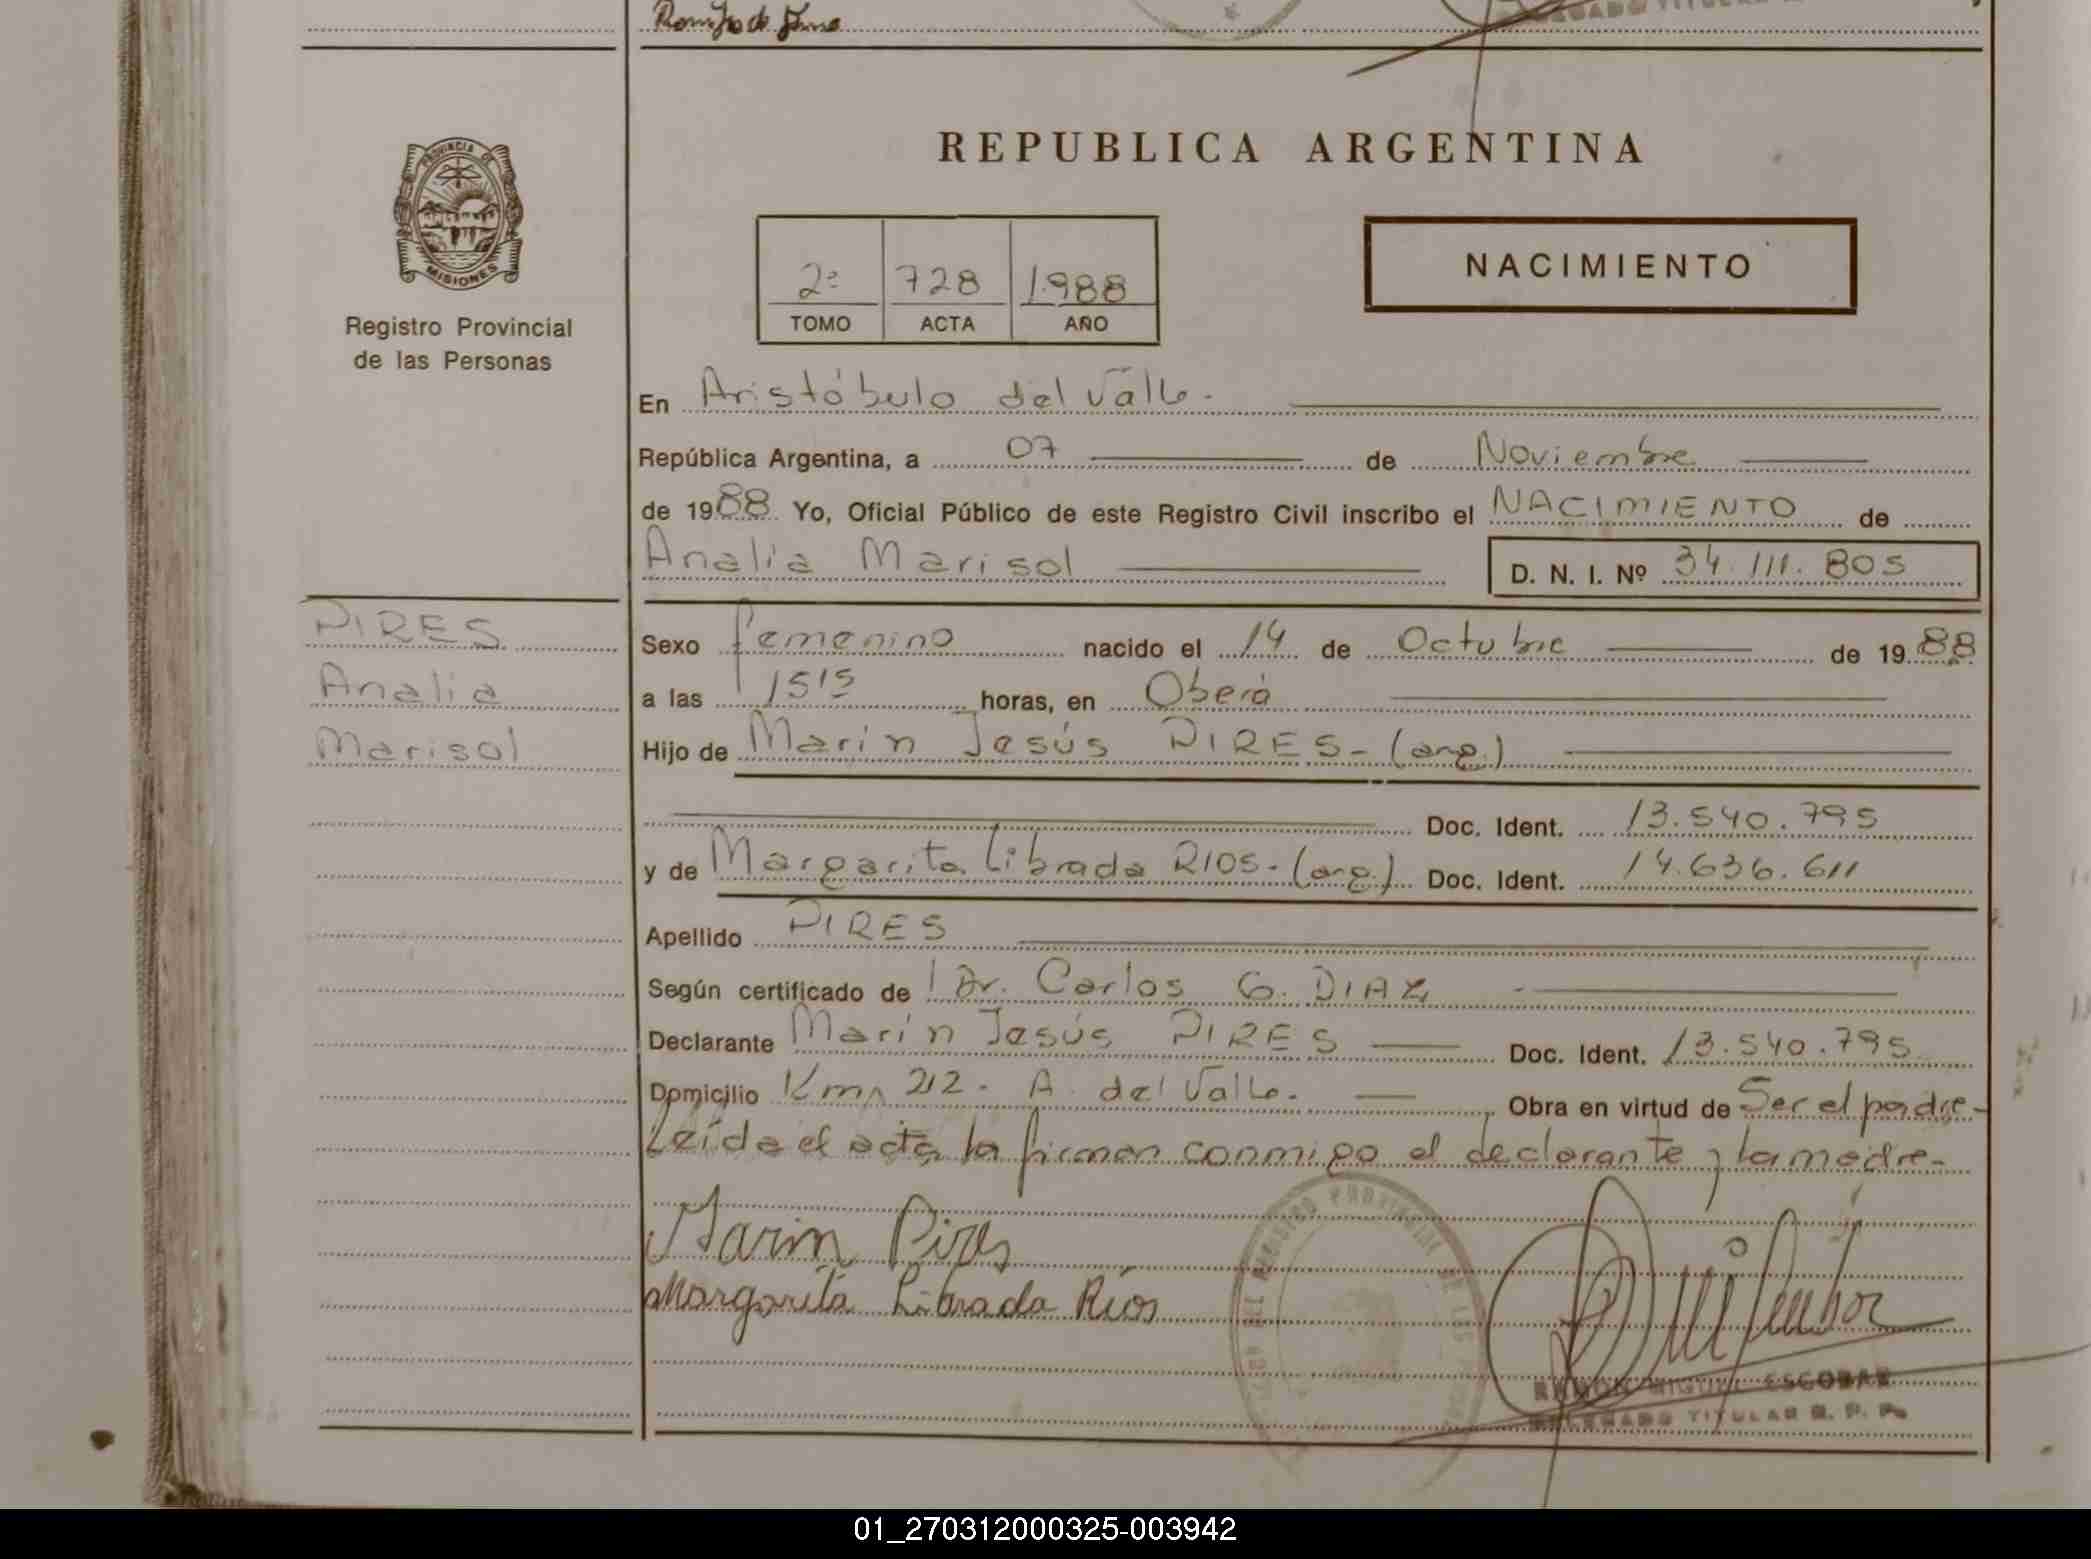 REPUBLICA ARGENTINA
PROVINCIA DE
MISIONES
Registro Provincial
de las Personas
2º 728 1.988
TOMO ACTA AÑO
NACIMIENTO
En Aristóbulo del Valle.
República Argentina, a 07 de Noviembre
de 1988 Yo, Oficial Público de este Registro Civil inscribo el NACIMIENTO de
Analia Marisol D. N. I. Nº 34.111.805
PIRES
Analia
Marisol
Sexo femenino nacido el 14 de Octubre de 1988
a las 15 15 horas, en Oberá
Hijo de Marín Jesús PIRES-(arg.)
Doc. Ident. 13.540.795
y de Margarita Librada RIOS-(arg.) Doc. Ident. 14.636.611
Apellido PIRES
Según certificado de Dr. Carlos G. DIAZ
Declarante Marín Jesús PIRES Doc. Ident. 13.540.795
Domicilio Km 212- A. del Valle. Obra en virtud de Ser el padre-
Leída el acta la firman conmigo el declarante y la madre-
Marin Pires
Margarita Librada Ríos
RAMON MIGUEL ESCOBAR
DELEGADO TITULAR R. P. P.
01_270312000325-003942